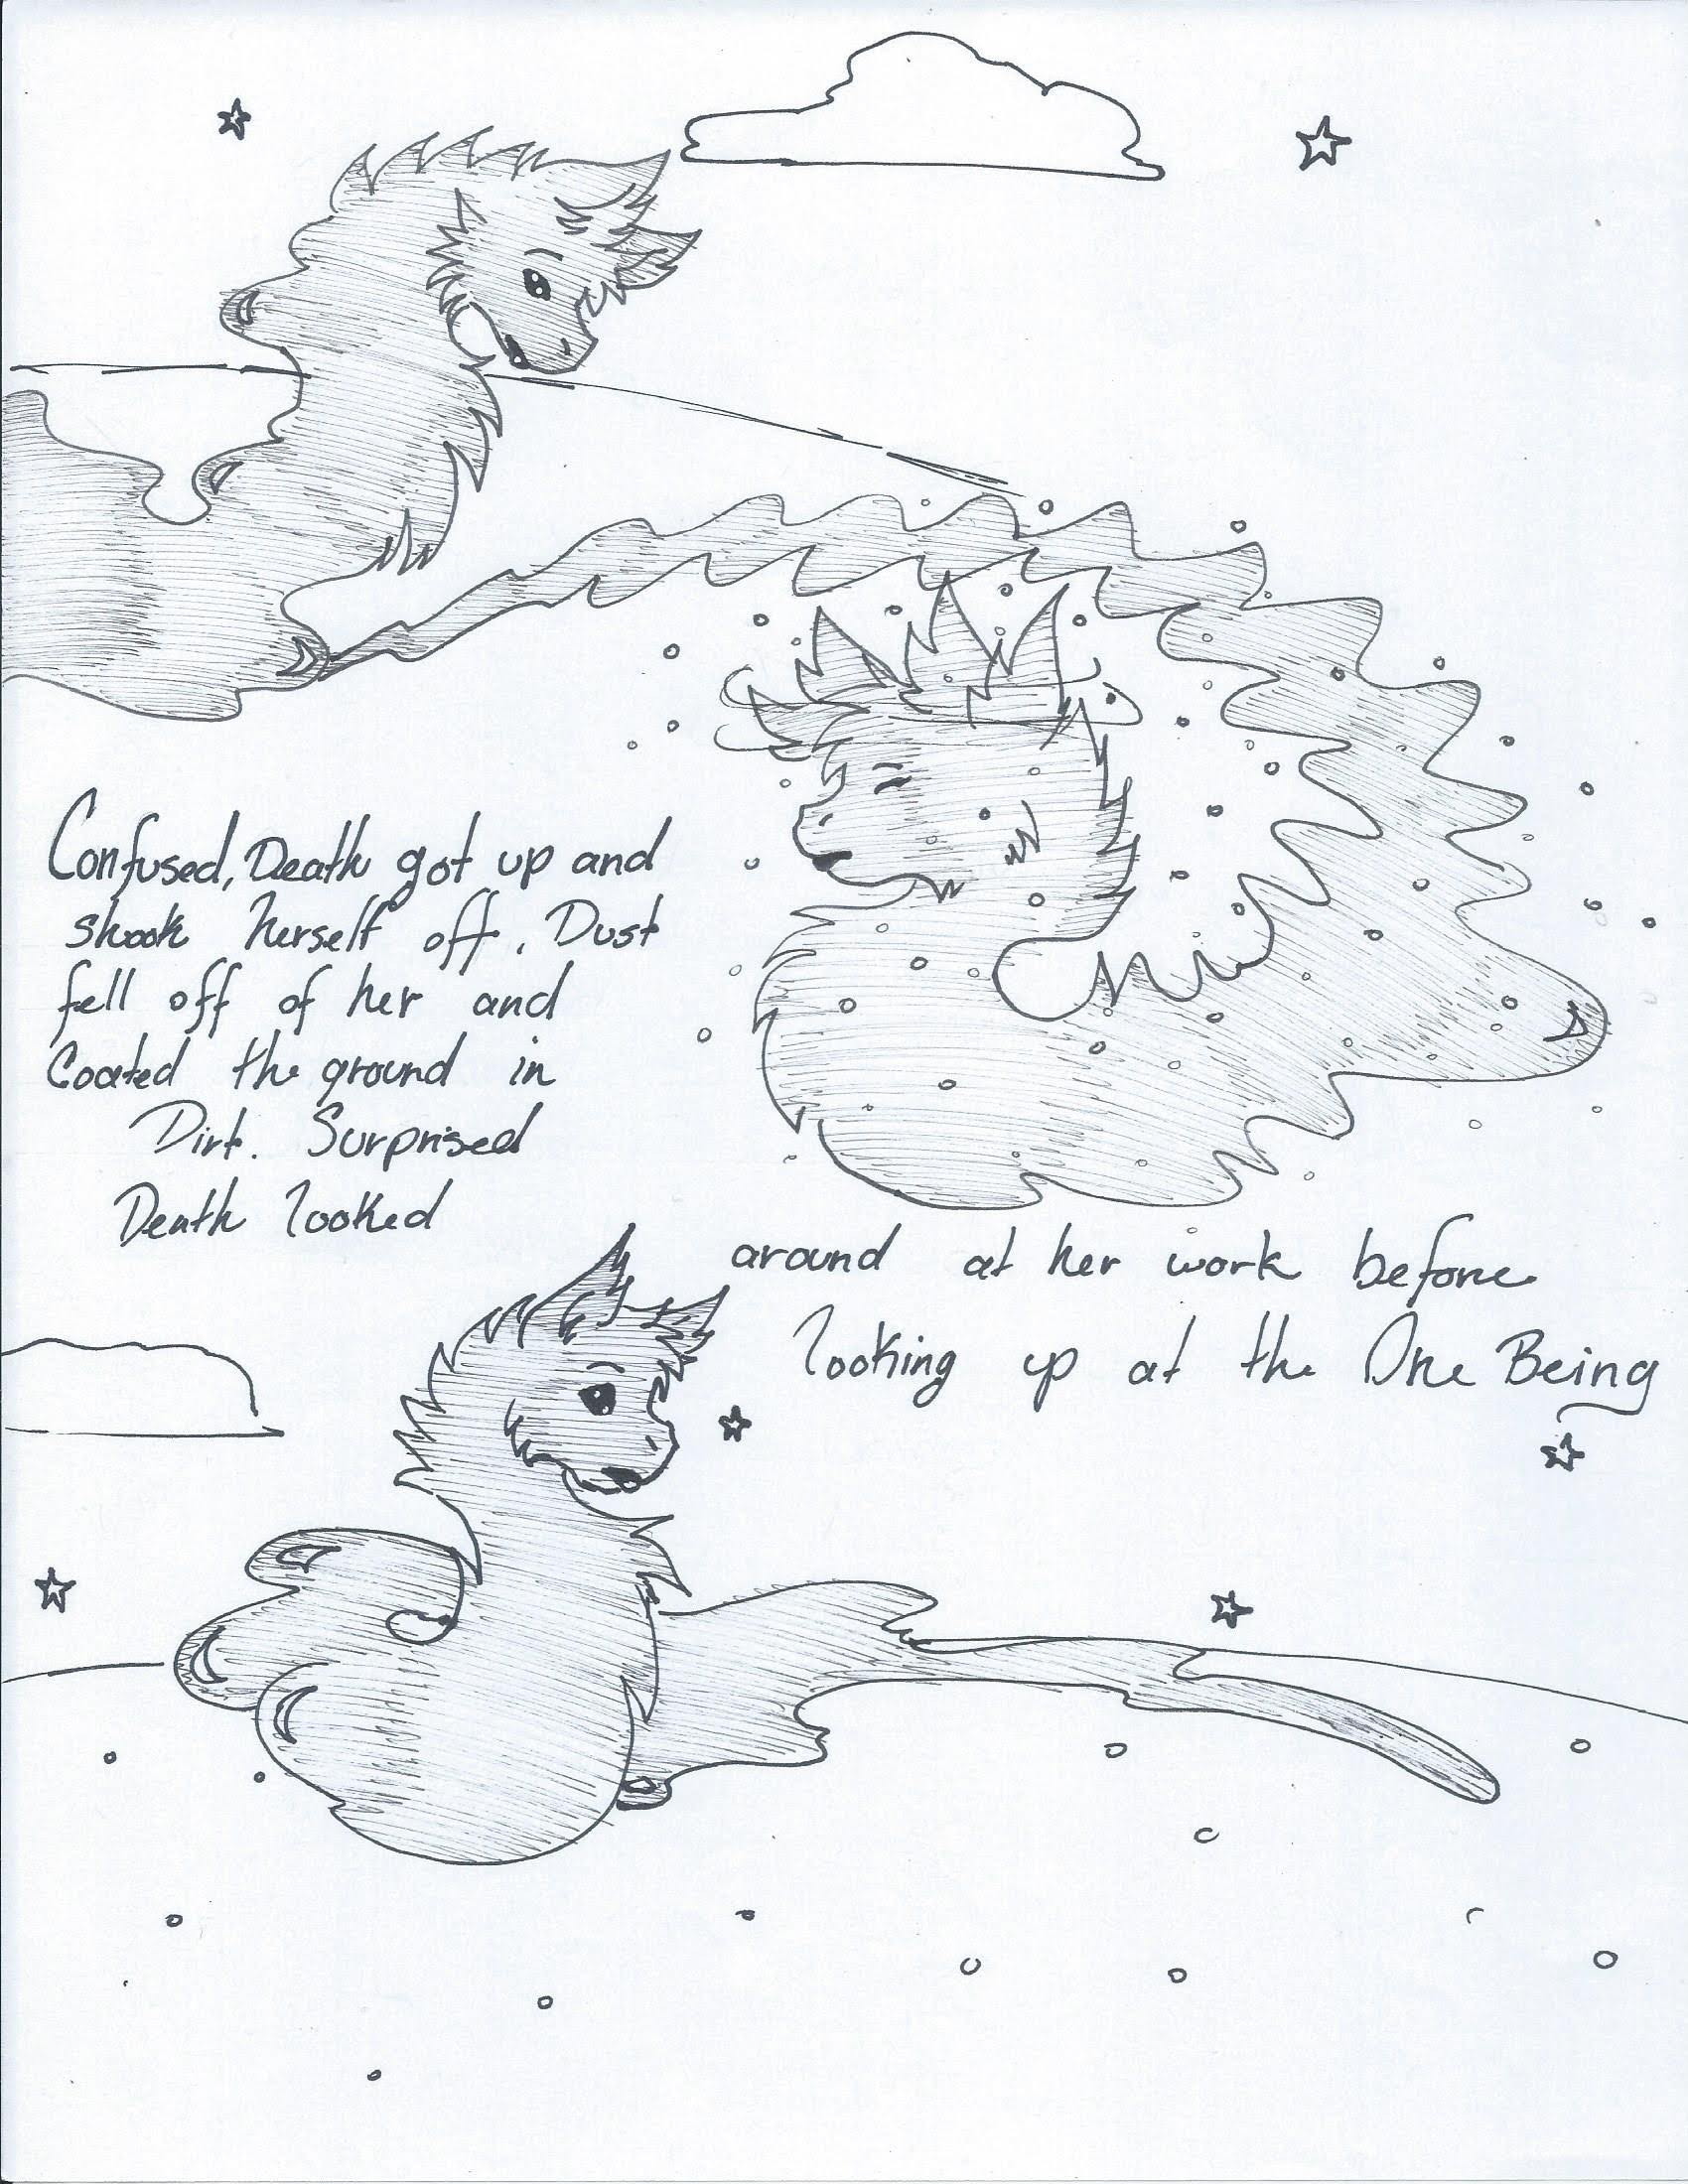 Confused, Death got up and
shook herself off. Dust
fell off of her and
Coated the ground in
Dirt. Surprised
Death looked
around at her work before
looking up at the One Being